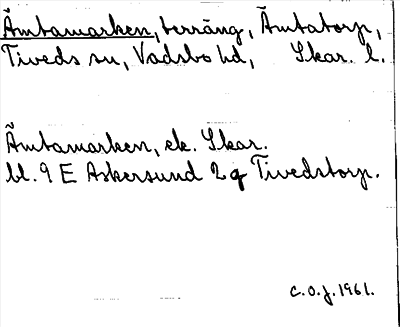 Åmtamarken, terräng, Åmtatorp,
Tiveds sn, Vadsbo hd, Skar. l.
Åmtamarken, ek. Skar.
bl. 9 E Askersund 2 g Tivedstorp.
C.O.J. 1961.